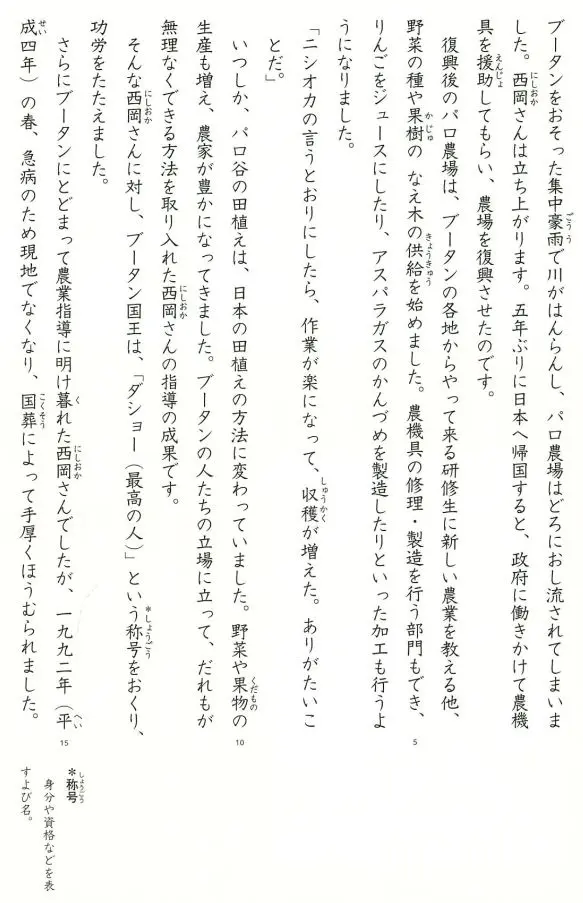 ブータンをおそった集中豪雨で川がはんらんし、パロ農場はどろにおし流されてしまいま
した。西岡さんは立ち上がります。五年ぶりに日本へ帰国すると、政府に働きかけて農機
具を援助してもらい、農場を復興させたのです。
復興後のパロ農場は、ブータンの各地からやって来る研修生に新しい農業を教える他、
野菜の種や果樹の なえ木の供給を始めました。農機具の修理・製造を行う部門もでき、
りんごをジュースにしたり、アスパラガスのかんづめを製造したりといった加工も行うよ
うになりました。
「ニシオカの言うとおりにしたら、作業が楽になって、収穫が増えた。ありがたいこ
とだ。」
いつしか、パロ谷の田植えは、日本の田植えの方法に変わっていました。野菜や果物の
生産も増え、農家が豊かになってきました。ブータンの人たちの立場に立って、だれもが
無理なくできる方法を取り入れた西岡さんの指導の成果です。
そんな西岡さんに対し、ブータン国王は、「ダショー（最高の人）」という*称号をおくり、
功労をたたえました。
さらにブータンにとどまって農業指導に明け暮れた西岡さんでしたが、一九九二年（平
成四年）の春、急病のため現地でなくなり、国葬によって手厚くほうむられました。
5
10
15
*称号
身分や資格などを表
すよび名。